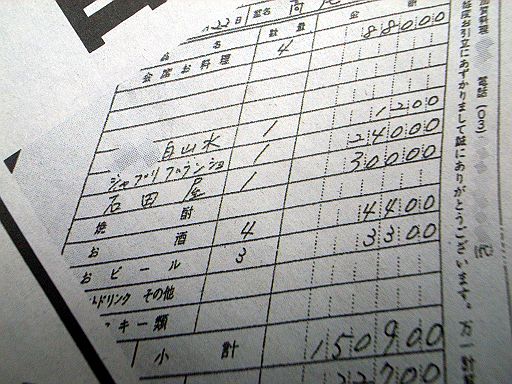 22日 室名
品名 数量 金額
会席お料理 4 88000
白山水 1 1200
シャブリ フランショ 1 24000
石田屋 1 30000
焼酎
お酒 4 4400
おビール 3 3300
ドリンク その他
キー類
小計 150900
22700
電話(03)
毎度お引立にあずかりまして誠にありがとうございます。万一計算